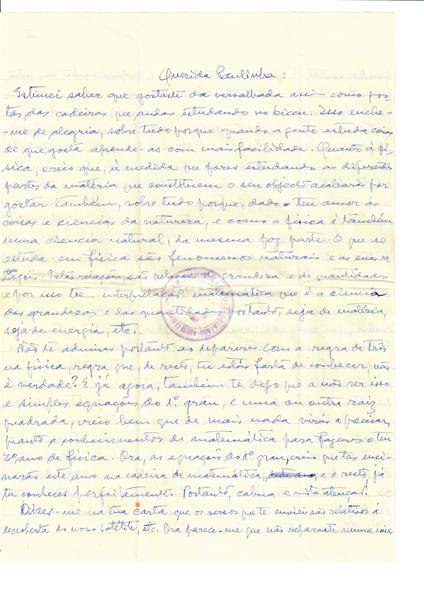 Querida Paulinha:
Estimei saber que gostaste da versalhada assim como gos-
tas das cadeiras que andas estudando no liceu. Isso enche-
-me de alegria, sobre tudo porque quando a gente estuda coisas
de que gosta aprende-as com mais facilidade. Quanto à fí-
sica, creio que, à medida que fores estudando as diferentes
partes da matéria que constituem o seu objecto acabarás por
gostar também, sobre tudo porque, dado o teu amor às
coisas e ciencias da natureza, e como a física é também
uma ciencia natural, da mesma faz parte. O que se
estuda em física são fenomenos naturais e as suas re-
lações. Estas relações são relações de grandeza e de quantidades
e por isso tem interpretação matemática que é a ciencia
das grandezas e das quantidades portanto, seja de matéria,
seja de energia, etc.
Não te admires portanto ao deparares com a regra de três
na física, regra que, de resto, tu estás farta de conhecer, não
é verdade? E já agora, também te digo que a não ser isso
e simples equações do 1º grau, e uma ou outra raiz
quadrada, creio bem que de mais nada virás a precisar,
quanto a conhecimentos de matemática para fazeres o teu
ano de física. Ora, as equações do 1º grau, creio que tas ensi-
narão este ano na cadeira de matemática, e o resto já
tu conheces perfeitamente. Portanto, calma e muita atenção!
Dizes-me na tua carta que os versos que te enviei são relativos à
descoberta do nosso satélite, etc. Ora parece-me que não reparaste numa coisa